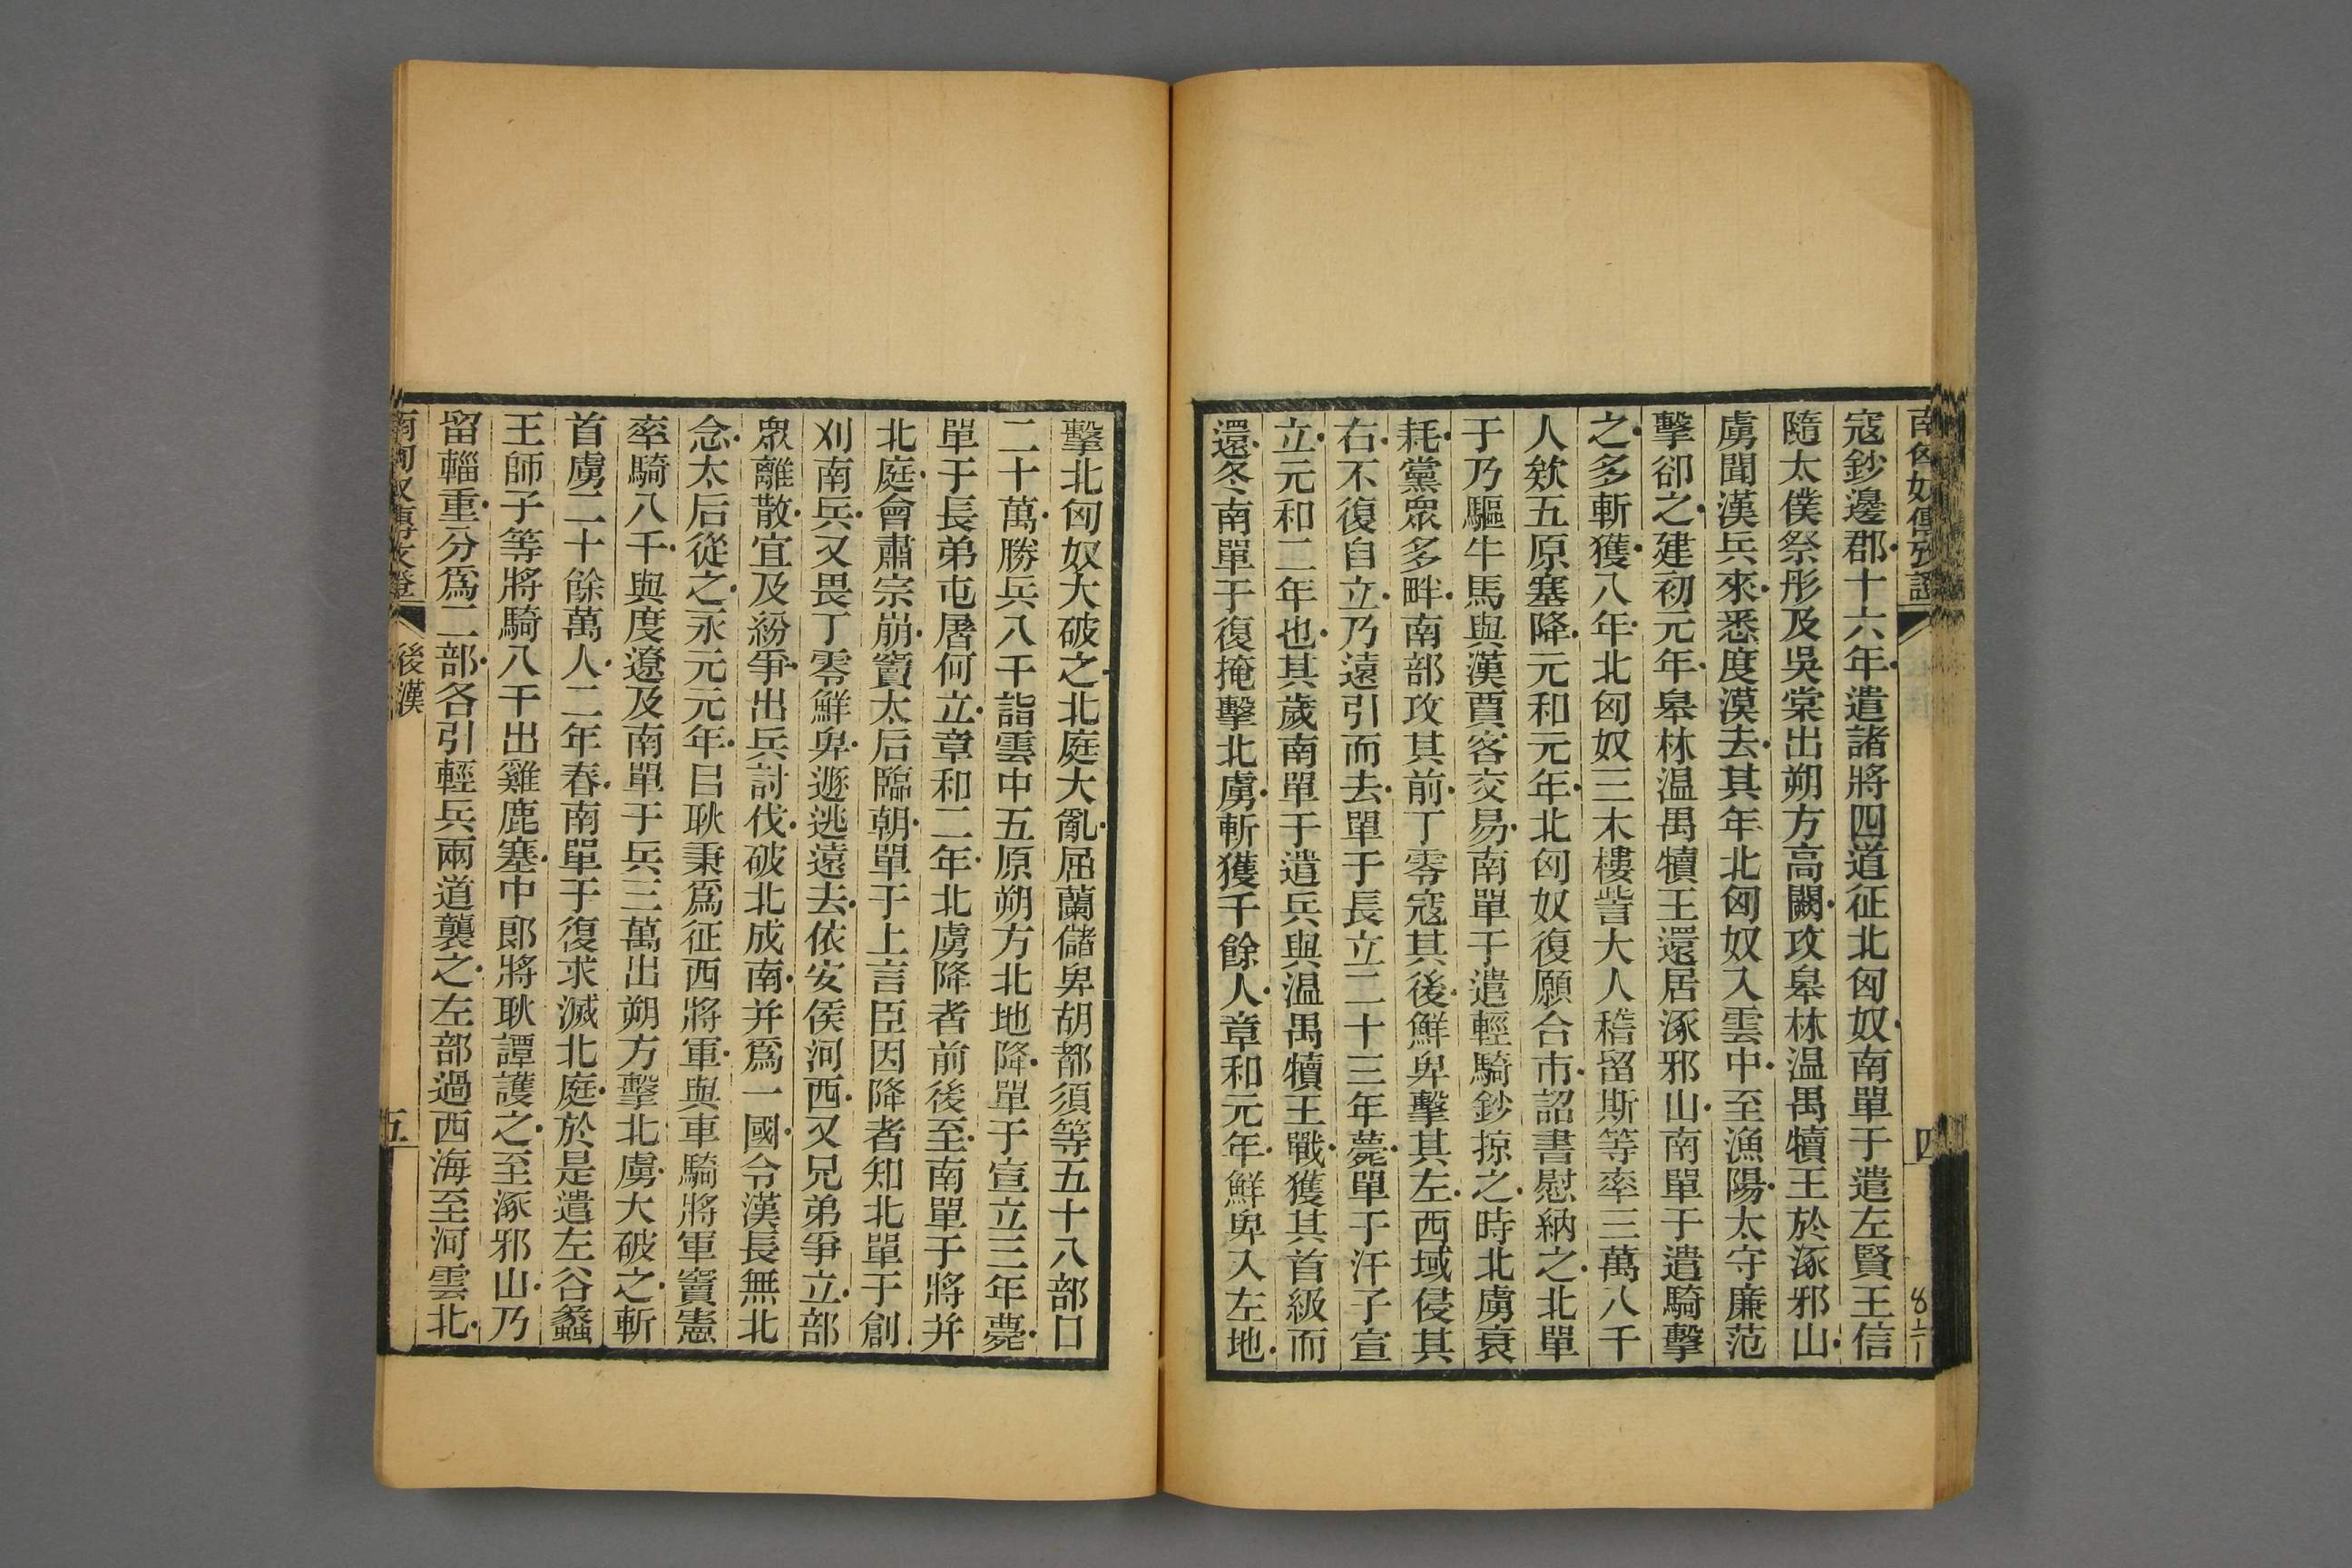 南匈奴傳攷證
四
寇鈔邊郡十六年遣諸將四道征北匈奴南單于遣左賢王信
隨太僕祭彤及吳棠出朔方高闕攻皋林温禺犢王於涿邪山
虜聞漢兵來悉度漠去其年北匈奴入雲中至漁陽太守廉范
擊卻之建初元年皋林温禺犢王還居涿邪山南單于遣騎擊
之多斬獲八年北匈奴三木樓訾大人稽留斯等率三萬八千
人欵五原塞降元和元年北匈奴復願合市詔書慰納之北單
于乃驅牛馬與漢賈客交易南單于遣輕騎鈔掠之時北虜衰
耗黨眾多畔南部攻其前丁零寇其後鮮卑擊其左西域侵其
右不復自立乃遠引而去單于長立二十三年薨單于汗子宣
立元和二年也其歲南單于遣兵與温禺犢王戰獲其首級而
還冬南單于復掩擊北虜斬獲千餘人章和元年鮮卑入左地
擊北匈奴大破之北庭大亂屈蘭儲卑胡都須等五十八部口
二十萬勝兵八千詣雲中五原朔方北地降單于宣立三年薨
單于長弟屯屠何立章和二年北虜降者前後至南單于將并
北庭會肅宗崩竇太后臨朝單于上言臣因降者知北單于創
刈南兵又畏丁零鮮卑遯逃遠去依安侯河西又兄弟爭立部
眾離散宜及紛爭出兵討伐破北成南并爲一國令漢長無北
念太后從之永元元年㠯耿秉爲征西將軍與車騎將軍竇憲
率騎八千與度遼及南單于兵三萬出朔方擊北虜大破之斬
首虜二十餘萬人二年春南單于復求滅北庭於是遣左谷蠡
王師子等將騎八千出雞鹿塞中郎將耿譚護之至涿邪山乃
留輜重分爲二部各引輕兵兩道襲之左部過西海至河雲北
南匈奴傳攷證
後漢
五